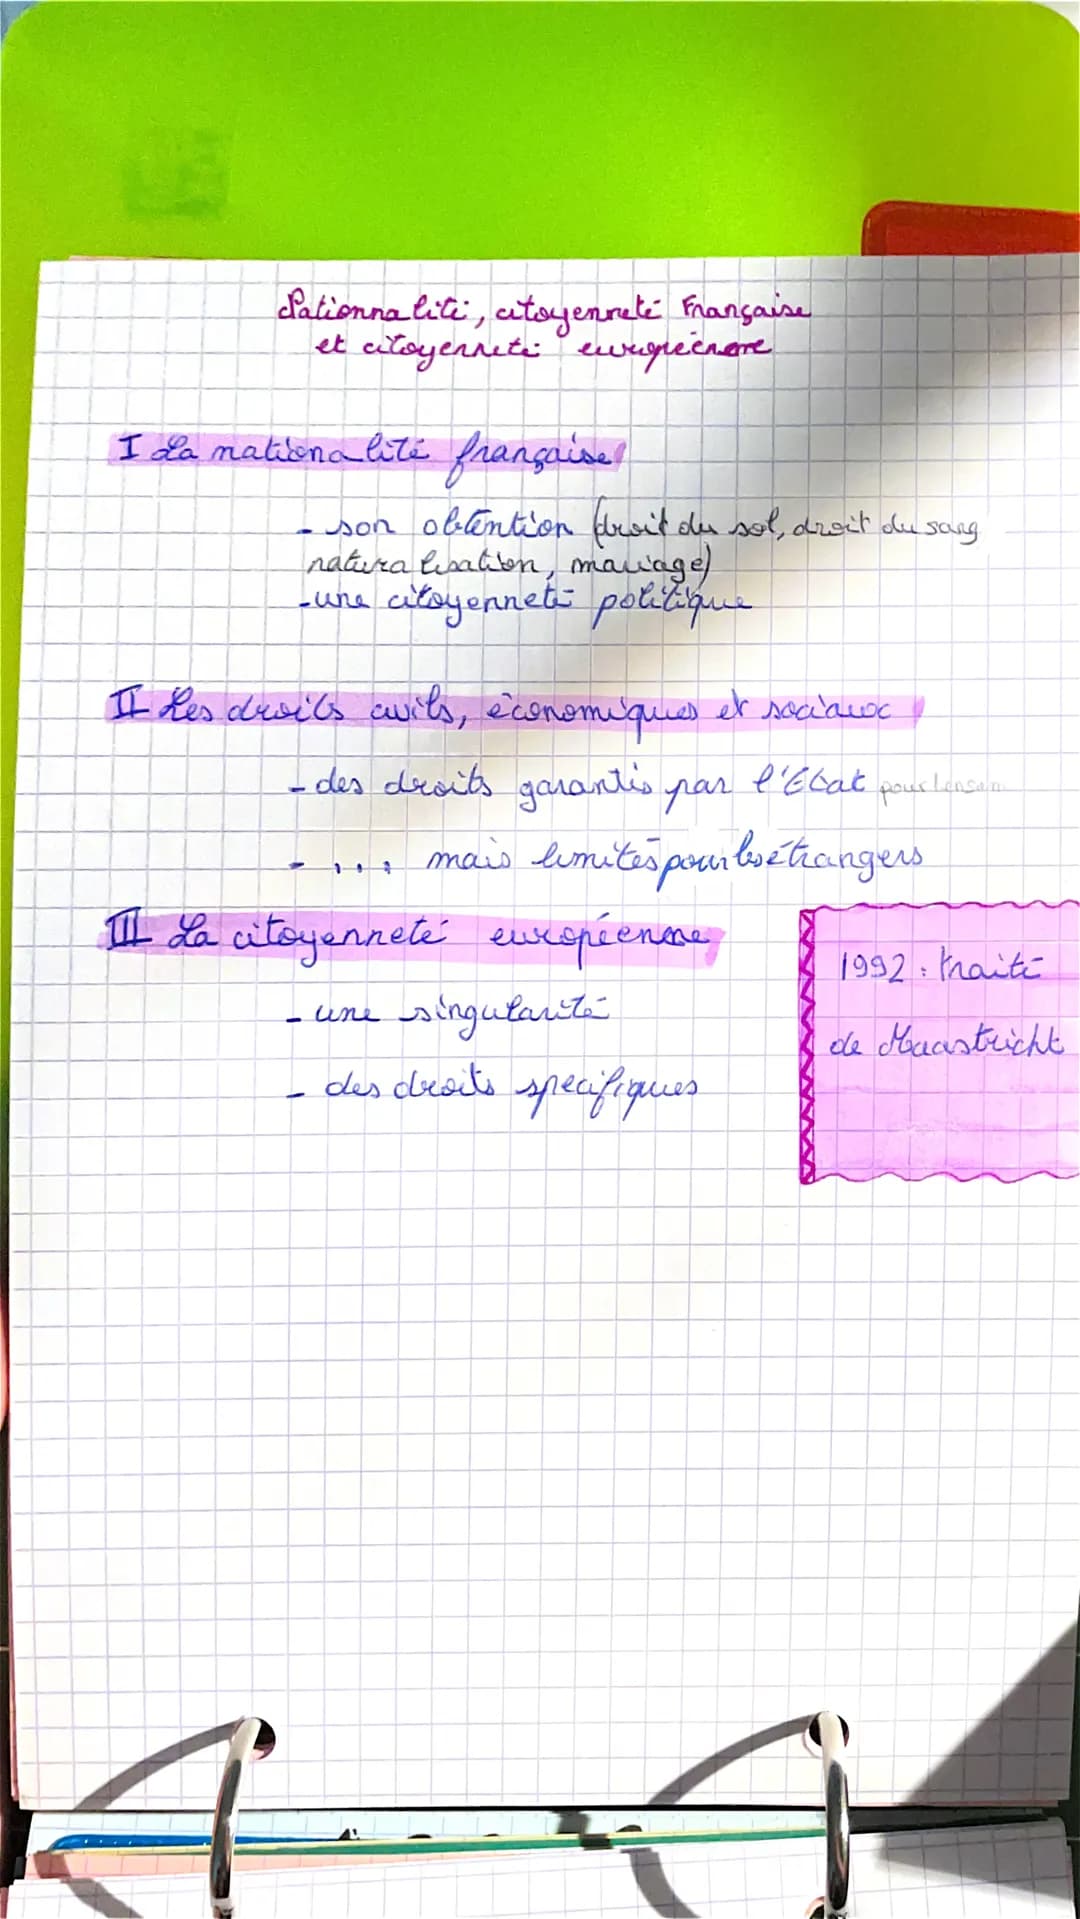 Nationnalité, citoyenneté Française
et citoyenneté européenne
I La nationalité française
- son obtention (droit du sol, droit du sang
naturalisation, mariage)
- une citoyenneté politique
II Les droits civils, économiques et sociaux
- des droits garantis par l'Etat pour
- ... mais limités pour les étrangers
III La citoyenneté européenne
- une singularité
- des droits specifiques
1992 : traité
de Maastricht